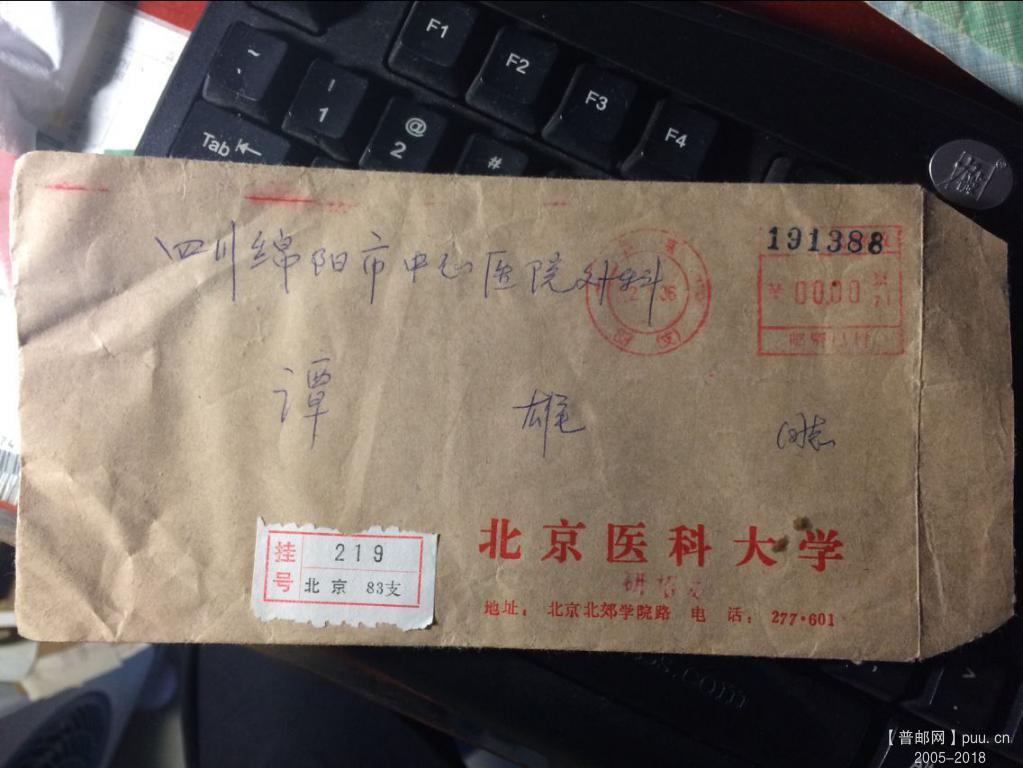 F1
F2
F3
F4
~
!
1
@
2
#
Tab
191388
四川绵阳市中心医院外科
00.00
谭 雄 同志
挂号
219
北京 83支
北京医科大学
地址: 北京北郊学院路 电 话: 277·601
【普邮网】puu.cn
2005-2018